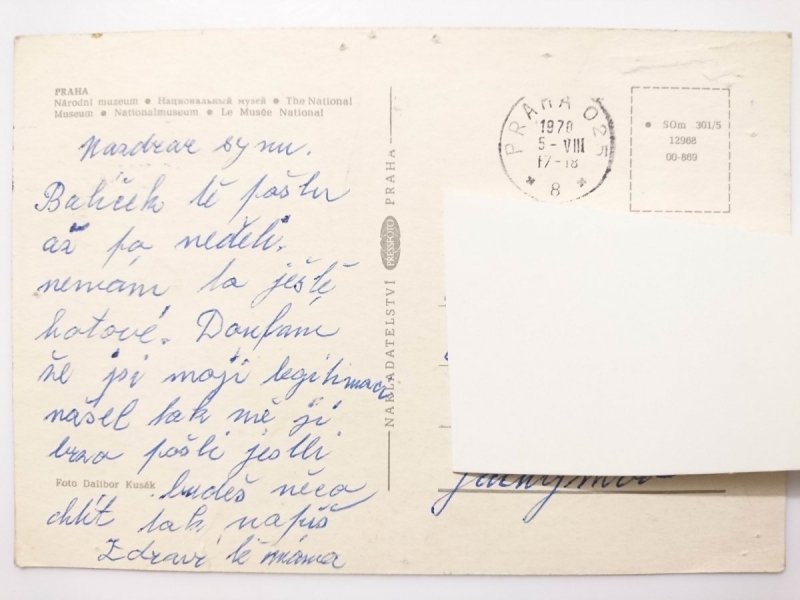 PRAHA
Národní muzeum • Национальный музей • The National
Museum • Nationalmuseum • Le Musée National
Nazdrav synu.
Balíček tě pošlu
až po neděli.
nemám to ještě
hotové. Doufám
že jsi moji legitimaci
našel tak mě ji
brzo pošli jestli
budeš něco
chtít tak napiš
Zdraví tě máma
Foto Dalibor Kusák
NAKLADATELSTVÍ PRESSFOTO PRAHA
PRAHA 025
1970
5-VIII
17-18
* 8 *
• SOm 301/5
12968
00-869